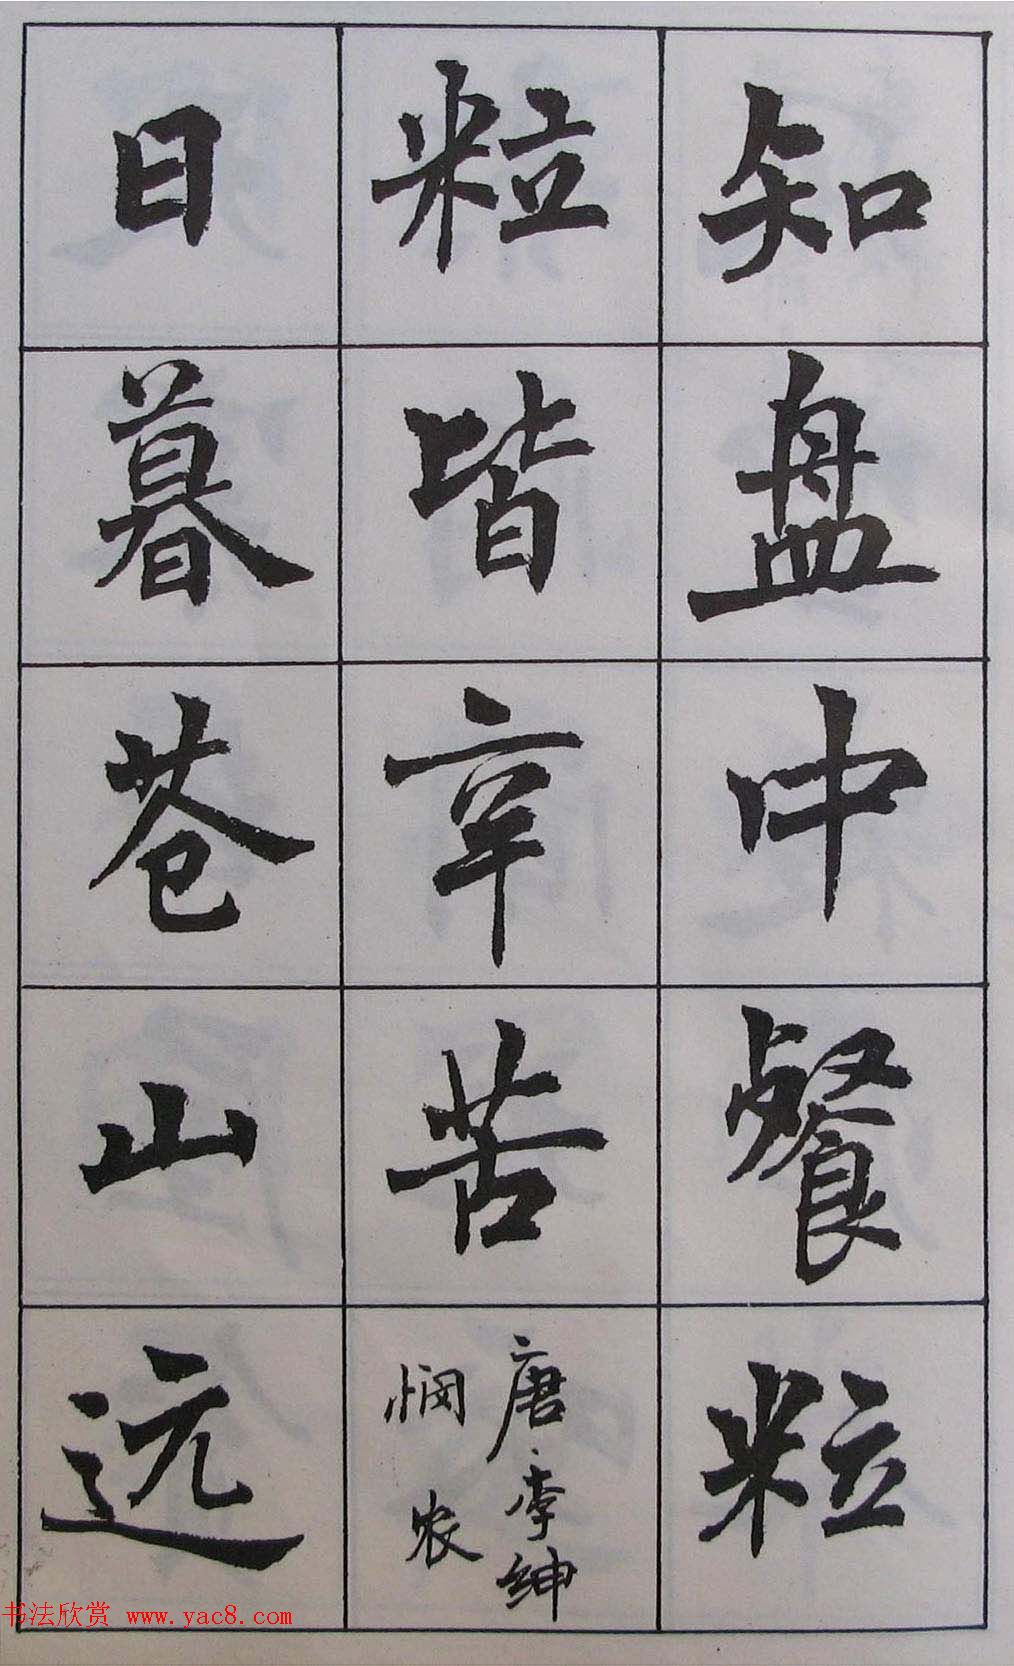 知盘中餐粒
粒皆辛苦
唐李绅
悯农
日暮苍山远
书法欣赏 www.yac8.com